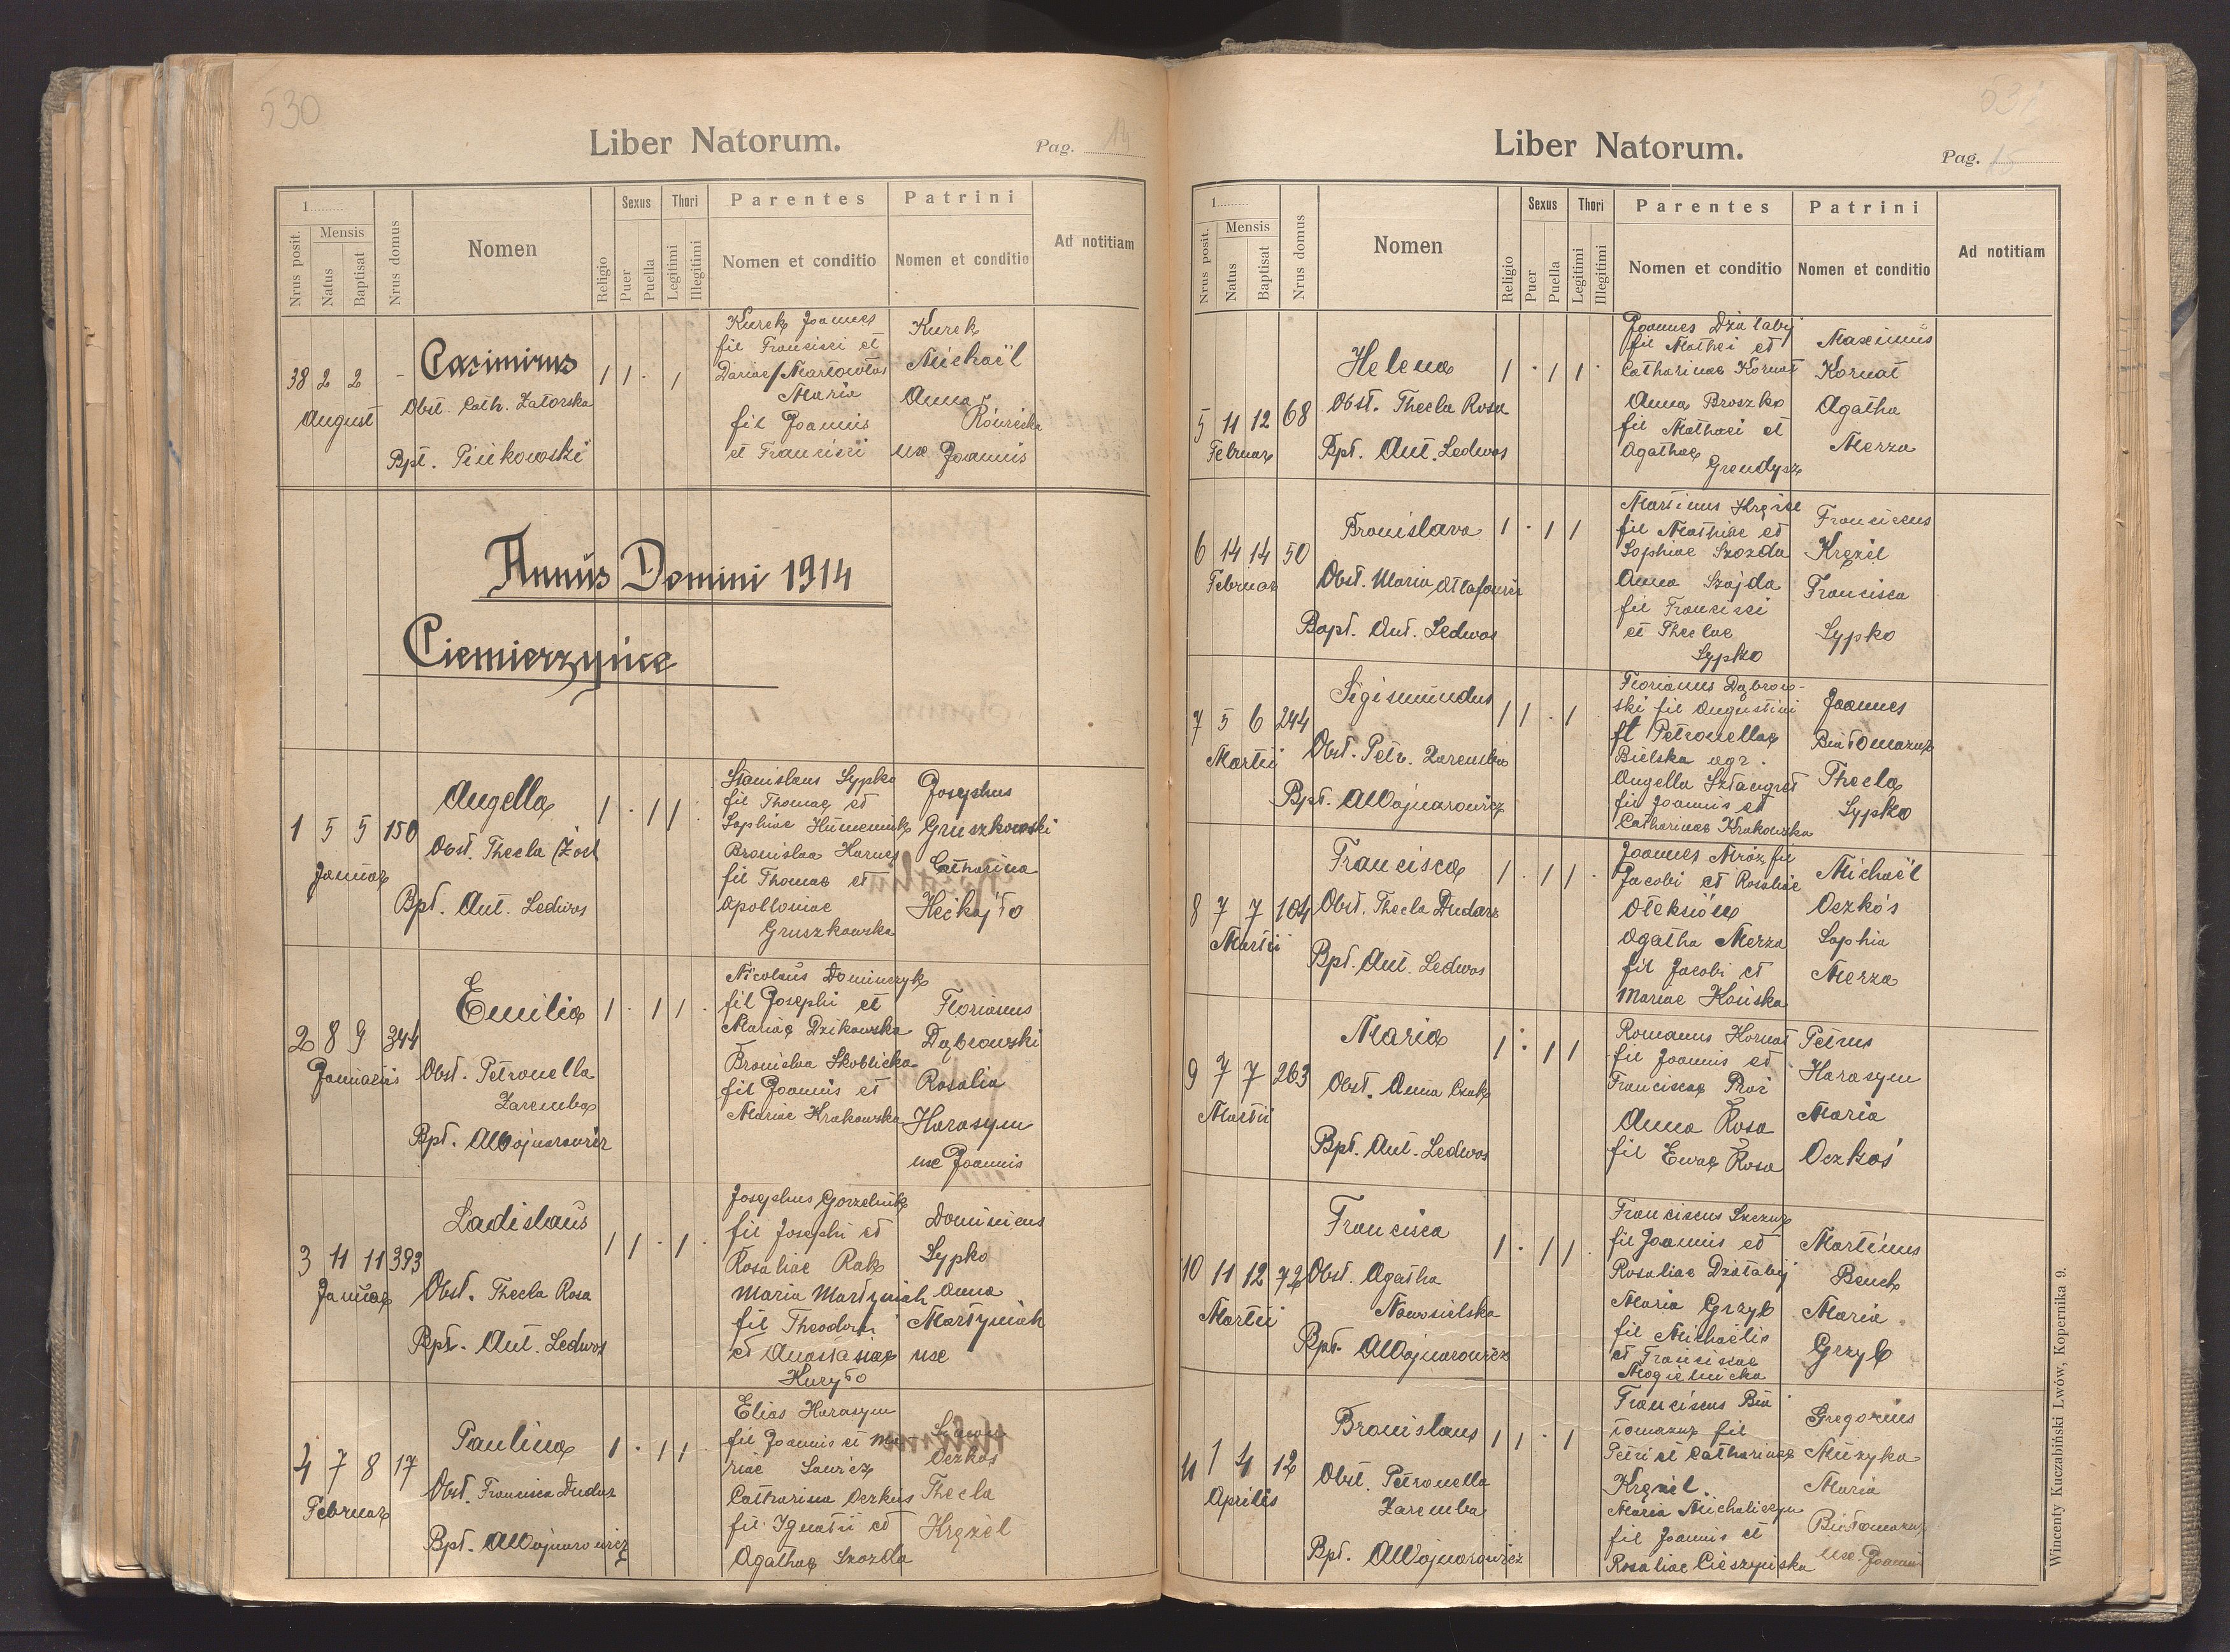 530
Liber Natorum.
Pag. 14
1
Nrus posit.
Mensis
Natus
Baptisat
Nrus domus
Nomen
Religio
Sexus
Puer
Puella
Thori
Legitimi
Illegitimi
Parentes
Nomen et conditio
Patrini
Nomen et conditio
Ad notitiam
38 2 2 -
August
Casimirus
Obst. Cath. Zatorska
Bpt.
1 1 · 1
Kurek Joannes
fil Francisci et
Maria
fil Joannis
et Francisci
Kurek
Michaël
Anna
ux Joannis
Annus Domini 1914
Ciemierzyńce
1 5 5 150
Januar
Angella
Obst. Thecla
Bpt. Ant. Ledwos
1 · 1 1 ·
Stanislaus Sypko
fil Thomae et
Sophiae Humeniuk
Bronislaa Harnes
fil Thomae et
Apolloniae
Gruszkowska
Josephus
Gruszkowski
Catharina
Heckajło
2 8 9 344
Januarii
Emilia
Obst. Petronella
Zaremba
Bpt. A Wojnarowicz
1 · 1 1 ·
Nicolaus Dominczyk
fil Josephi et
Mariae Dzikowska
Bronislaa Skoblicka
fil Joannis et
Mariae Krakowska
Florianus
Dąbrowski
Rosalia
Harasym
ux Joannis
3 11 11 393
Januar
Ladislaus
Obst. Thecla Rosa
Bpt. Ant. Ledwos
1 1 · 1 ·
Josephus Gorzelnik
fil Josephi et
Rosaliae Rak
Maria Martyniak
fil Theodori
et Anastasiae
Kuryło
Dominicus
Sypko
Anna
Martyniak
ux
4 7 8 17
Februar
Paulina
Obst. Francisca Dudar
Bpt. A Wojnarowicz
1 · 1 1
Elias Harasym
fil Joannis et Ma
riae Sawicz
Catharina Oczkus
fil Ignatii et
Agathae Szozda
Oczkos
Thecla
Krężel
531
Liber Natorum.
Pag. 15
1
Nrus posit.
Mensis
Natus
Baptisat
Nrus domus
Nomen
Religio
Sexus
Puer
Puella
Thori
Legitimi
Illegitimi
Parentes
Nomen et conditio
Patrini
Nomen et conditio
Ad notitiam
5 11 12 68
Februar
Helena
Obst. Thecla Rosa
Bpt. Ant. Ledwos
1 · 1 1 ·
Joannes Działabij
fil Mathei et
Catharinae Kornat
Anna Broszko
fil Mathaei et
Agathae
Grendysz
Maximus
Kornat
Agatha
Merza
6 14 14 50
Februar
Bronislava
Obst. Maria
Bapt. Ant. Ledwos
1 · 1 1
Martinus Krężel
fil Mathiae et
Sophiae Szozda
Anna Szajda
fil Francisci
et Theclae
Sypko
Franciscus
Krężel
Francisca
Sypko
7 5 6 244
Martii
Sigismundus
Obst. Petr. Zaremba
Bpt. A Wojnarowicz
1 1 · 1
Florianus Dąbrow-
ski fil Augustini
et Petronellae
Bielska agr.
Angella Sztangret
fil Joannis et
Catharinae Krakowska
Joannes
Białomazur
Thecla
Sypko
8 7 7 104
Martii
Francisca
Obst. Thecla Dudarz
Bpt. Ant. Ledwos
1 · 1 1 ·
Joannes Mróz fil
Jacobi et Rosaliae
Oleksiów
Agatha Merza
fil Jacobi et
Mariae Kouska
Michaël
Oczkós
Sophia
Merza
9 7 7 263
Martii
Maria
Obst. Anna Czak
Bpt. Ant. Ledwos
1 : 1 1
Romanus Kornat
fil Joannis et
Franciscae
Anna Rosa
fil Ewae Rosa
Petrus
Harasym
Maria
Oczkoś
10 11 12 72
Martii
Francisca
Obst. Agatha
Nowosielska
Bpt. A Wojnarowicz
1 · 1 1
Franciscus Szczur
fil Joannis et
Rosaliae Działabij
Maria Grzyb
fil Michaëlis
et Franciscae
Mogielnicka
Martinus
Bench
Maria
Grzyb
11 1 4 12
Aprilis
Bronislaus
Obst. Petronella
Zaremba
Bpt. A Wojnarowicz
1 1 · 1
Franciscus Bia
łomazur fil
Petri et Catharinae
Krężel.
Maria Michaliczyn
fil Joannis et
Rosaliae Cieszyńska
Gregorius
Muzyka
Maria
Białomazur
ux. Joannis
Wincenty Kuczabiński Lwów, Kopernika 9.